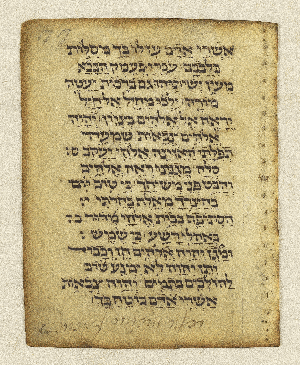 אשרי אדם עוז לו בך מסלות
בלבבם עברי בעמק הבכא
מעין ישיתוהו גם ברכות יעטה
מורה ילכו מחיל אל חיל
יראה אל אלהים בציון יהוה
אלהים צבאות שמעה
תפלתי האזינה אלהי יעקב
סלה מגננו ראה אלהים
והבט פני משיחך כי טוב יום
בחצריך מאלף בחרתי
הסתופף בבית אלהי מדור
באהלי רשע כי שמש
ומגן יהוה אלהים חן וכבוד
יתן יהוה לא ימנע טוב
להלכים בתמים יהוה צבאות
אשרי אדם בוטח בך